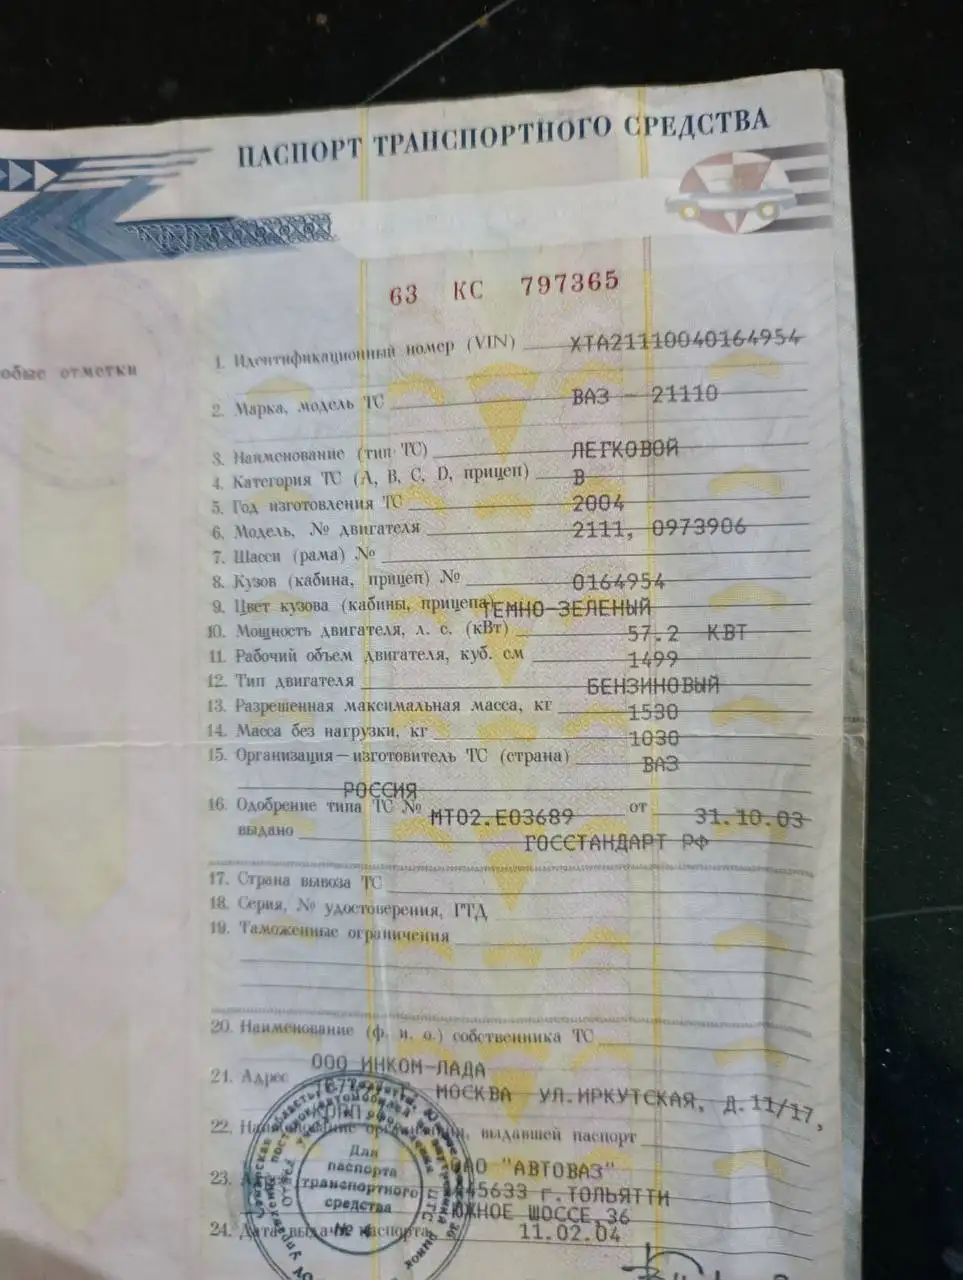 ПАСПОРТ ТРАНСПОРТНОГО СРЕДСТВА
63 КС 797365
обые отметки
1. Идентификационный номер (VIN) XTA21110040164954
2. Марка, модель ТС ВАЗ - 21110
3. Наименование (тип ТС) ЛЕГКОВОЙ
4. Категория ТС (А, В, С, D, прицеп) В
5. Год изготовления ТС 2004
6. Модель, № двигателя 2111, 0973906
7. Шасси (рама) №
8. Кузов (кабина, прицеп) № 0164954
9. Цвет кузова (кабины, прицепа) ТЕМНО-ЗЕЛЕНЫЙ
10. Мощность двигателя, л. с. (кВт) 57.2 КВТ
11. Рабочий объем двигателя, куб. см 1499
12. Тип двигателя БЕНЗИНОВЫЙ
13. Разрешенная максимальная масса, кг 1530
14. Масса без нагрузки, кг 1030
15. Организация-изготовитель ТС (страна) ВАЗ
РОССИЯ
16. Одобрение типа ТС № МТ02.Е03689 от 31.10.03
выдано ГОССТАНДАРТ РФ
17. Страна вывоза ТС
18. Серия, № удостоверения, ГТД
19. Таможенные ограничения
20. Наименование (ф. и. о.) собственника ТС
ООО ИНКОМ-ЛАДА
21. Адрес МОСКВА УЛ.ИРКУТСКАЯ, Д.11/17,
22. Наименование организации, выдавшей паспорт
ОАО "АВТОВАЗ"
23. 445633 г.ТОЛЬЯТТИ
ЮЖНОЕ ШОССЕ,36
24. Дата выдачи паспорта 11.02.04
Для
паспорта
транспортного
средства
№ 4